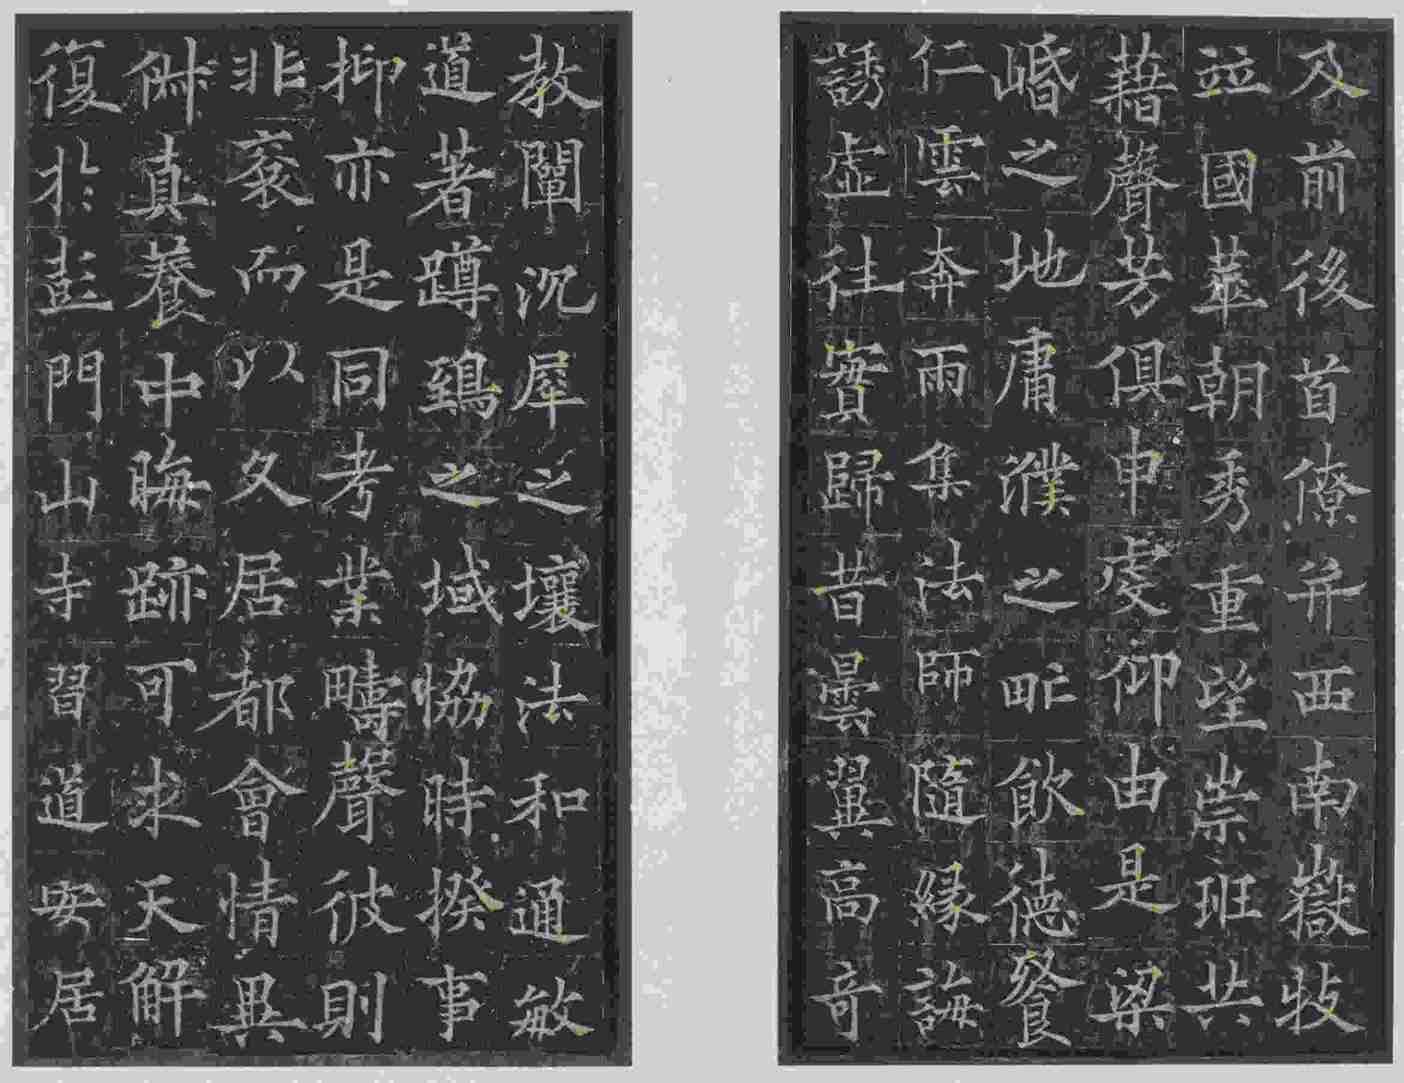 及前後首僚并西南嶽牧
竝國華朝秀重望崇班共
藉聲芳俱申虔仰由是梁
崏之地庸濮之甿飲德餐
仁雲奔雨集法師隨緣誨
誘虛往實歸昔曇翼高奇
教闡沉犀之壤法和通敏
道著蹲鵄之域協時揆事
抑亦是同考業疇聲彼則
非衮而以久居都會情異
俶真養中晦跡可求天解
復於彭門山寺習道安居